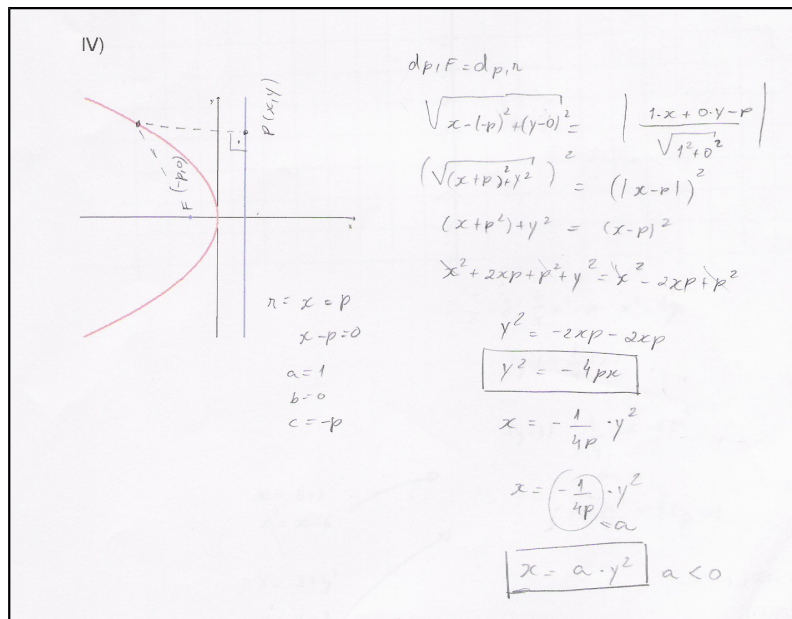 IV)
y
P(x,y)
F(-p,0)
x
r = x = p
x - p = 0
a = 1
b = 0
c = -p
dp,F = dp,r
√(x-(-p)² + (y-0)²) = |(1·x + 0·y - p)/√(1² + 0²)|
(√((x+p)² + y²))² = (|x-p|)²
(x+p²) + y² = (x-p)²
x² + 2xp + p² + y² = x² - 2xp + p²
y² = -2xp - 2xp
y² = -4px
x = -1/4p · y²
x = -1/4p · y²
= a
x = a · y² a < 0